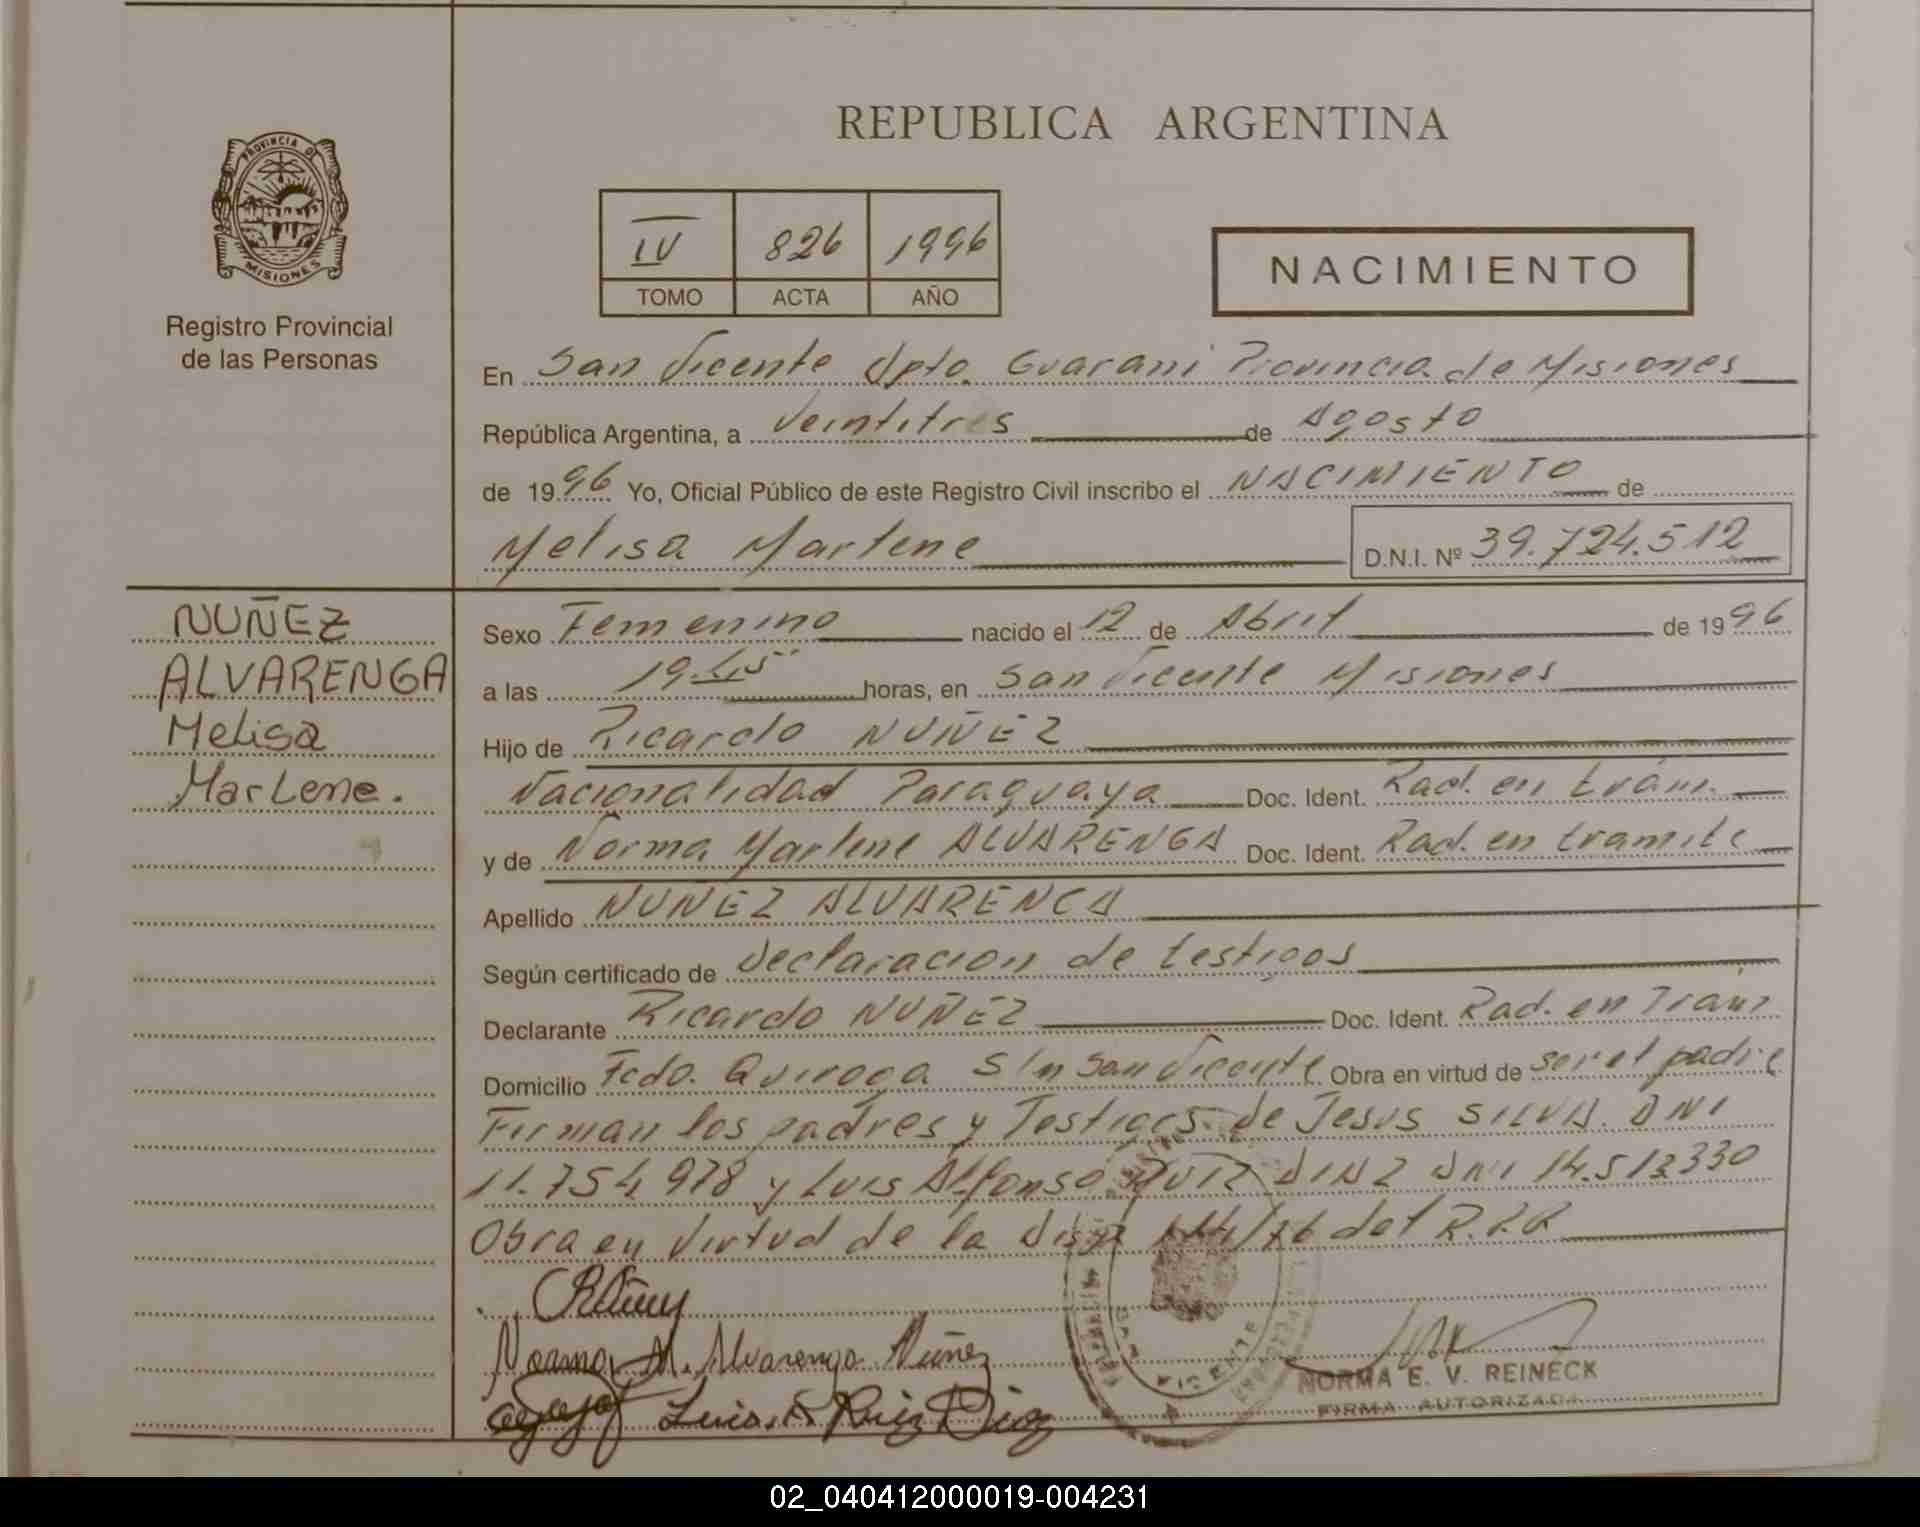 REPUBLICA ARGENTINA
PROVINCIA DE
MISIONES
Registro Provincial
de las Personas
IV 826 1996
TOMO ACTA AÑO
NACIMIENTO
En San Vicente Dpto. Guarani Provincia de Misiones
República Argentina, a Veintitres de Agosto
de 1996 Yo, Oficial Público de este Registro Civil inscribo el NACIMIENTO de
Melisa Marlene D.N.I. Nº 39.724.512
NUÑEZ
ALVARENGA
Melisa
Marlene.
Sexo Femenino nacido el 12 de Abril de 1996
a las 19:45 horas, en San Vicente Misiones
Hijo de Ricardo NUÑEZ
Nacionalidad Paraguaya Doc. Ident. Rad. en trám.
y de Norma Marlene ALVARENGA Doc. Ident. Rad. en tramite
Apellido NUÑEZ ALVARENGA
Según certificado de Declaracion de testigos
Declarante Ricardo NUÑEZ Doc. Ident. Rad. en Trám
Domicilio Fcdo. Quiroga S/n San Vicente Obra en virtud de ser el padre
Firman los padres y Testigos de Jesus SILVA. DNI
11.754.978 y Luis Alfonso RUIZ DIAZ DNI 14.513.330
Obra en Virtud de la del
Norma M. Alvarenga Núñez
Luis A. Ruiz Diaz
NORMA E. V. REINECK
FIRMA AUTORIZADA
02_040412000019-004231